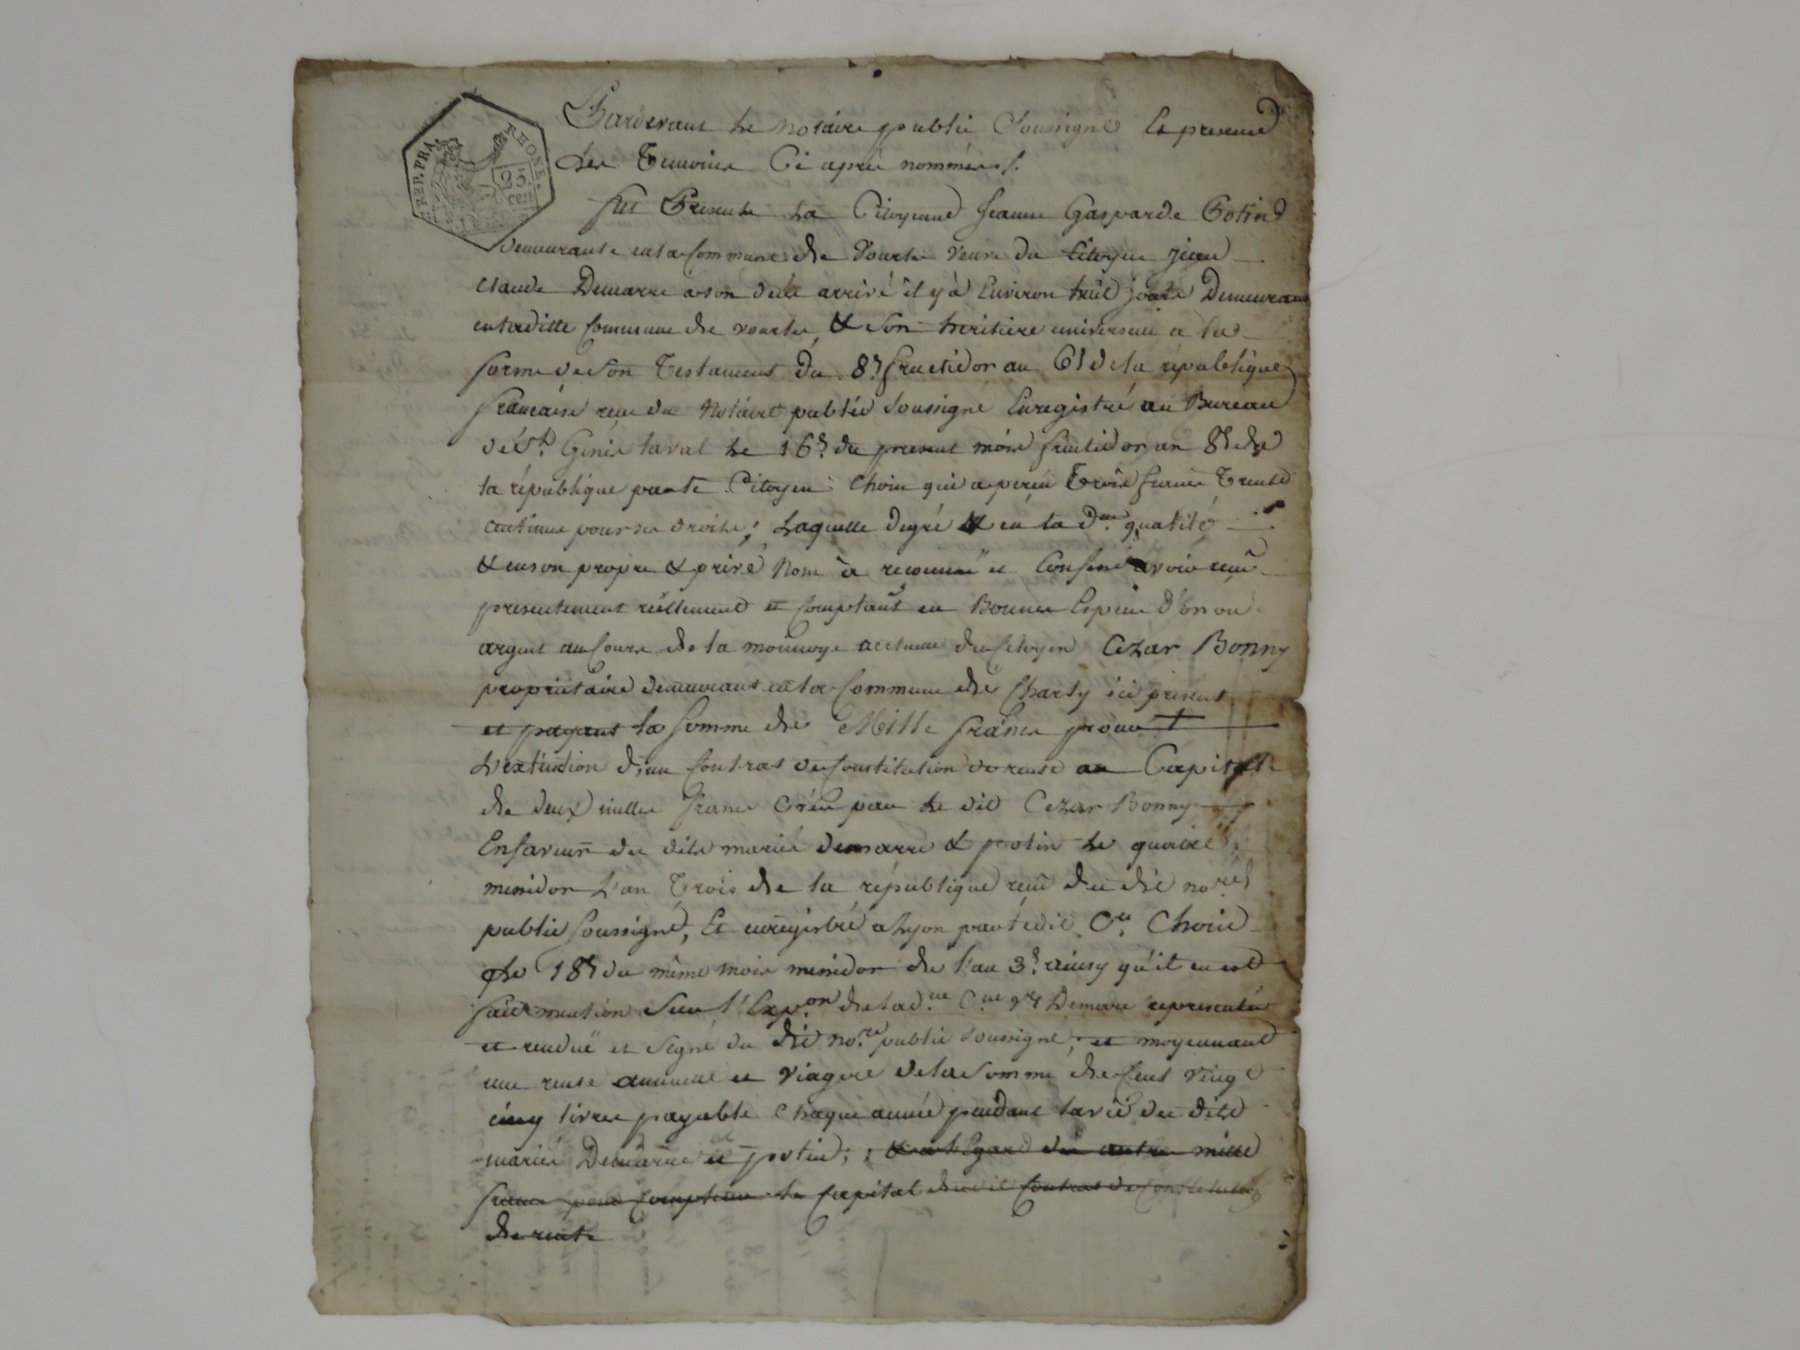 REP. FRA. RHONE.
25 cen
Pardevant Le notaire public Soussigné Et presence
des Temoins Ci après nommés.
fut Presente La Citoyenne Jeanne Gasparde Potin
demeurante en la Commune de Vourles veuve du Citoyen Jean
Claude Demarre a son decé arrivé il y à Environ huit jours Demeurant
en laditte Commune de vourles, & son heritiere universelle a la
forme de Son Testament du 8e fructidor an 6e de la republique
française reçu du Notaire public soussigné Enregistré au Bureau
de St. Genis laval Le 16e du present mois fructidor an 8e de
la république par le Citoyen Choin qui a perçu Trois francs Trente
Centimes pour ses droits; Laquelle degré & en la d.ne qualité
& en son propre & privé Nom à reconnu et Confessé avoir reçu
presentement réellement et Comptant en Bonnes Espece d'or ou
argent au Cours de la monnoye actuelle du Citoyen Cezar Bonny
proprietaire demeurant en la Commune de Charly ici present
et payant la somme de Mille francs pour +
L'extinction d'un Contrat de Constitution de rente au Capital
de deux milles francs Créé par le dit Cezar Bonny
En faveur des dits mariés demarre & potin le quatre
messidor L'an Trois de la république reçu du dit no.re
public soussigné, Et enregistré a Lyon par le dit C.en Choin
Le 18e du même mois messidor de l'an 3e ainsy qu'il en est
fait mention Sur l'Exp.on de la d.ne C.ne ve Demarre representée
et rendüe et signé du dit no.re public soussigné, et moyennant
une rente annuelle et viagere de la somme de Cent vingt
cinq livres payable Chaque année pendant la vie des dits
mariés Demarre et potin; & a l'Egard des autres mille
francs pour Completter le Capital du dit Contrat de Constitution
de rente